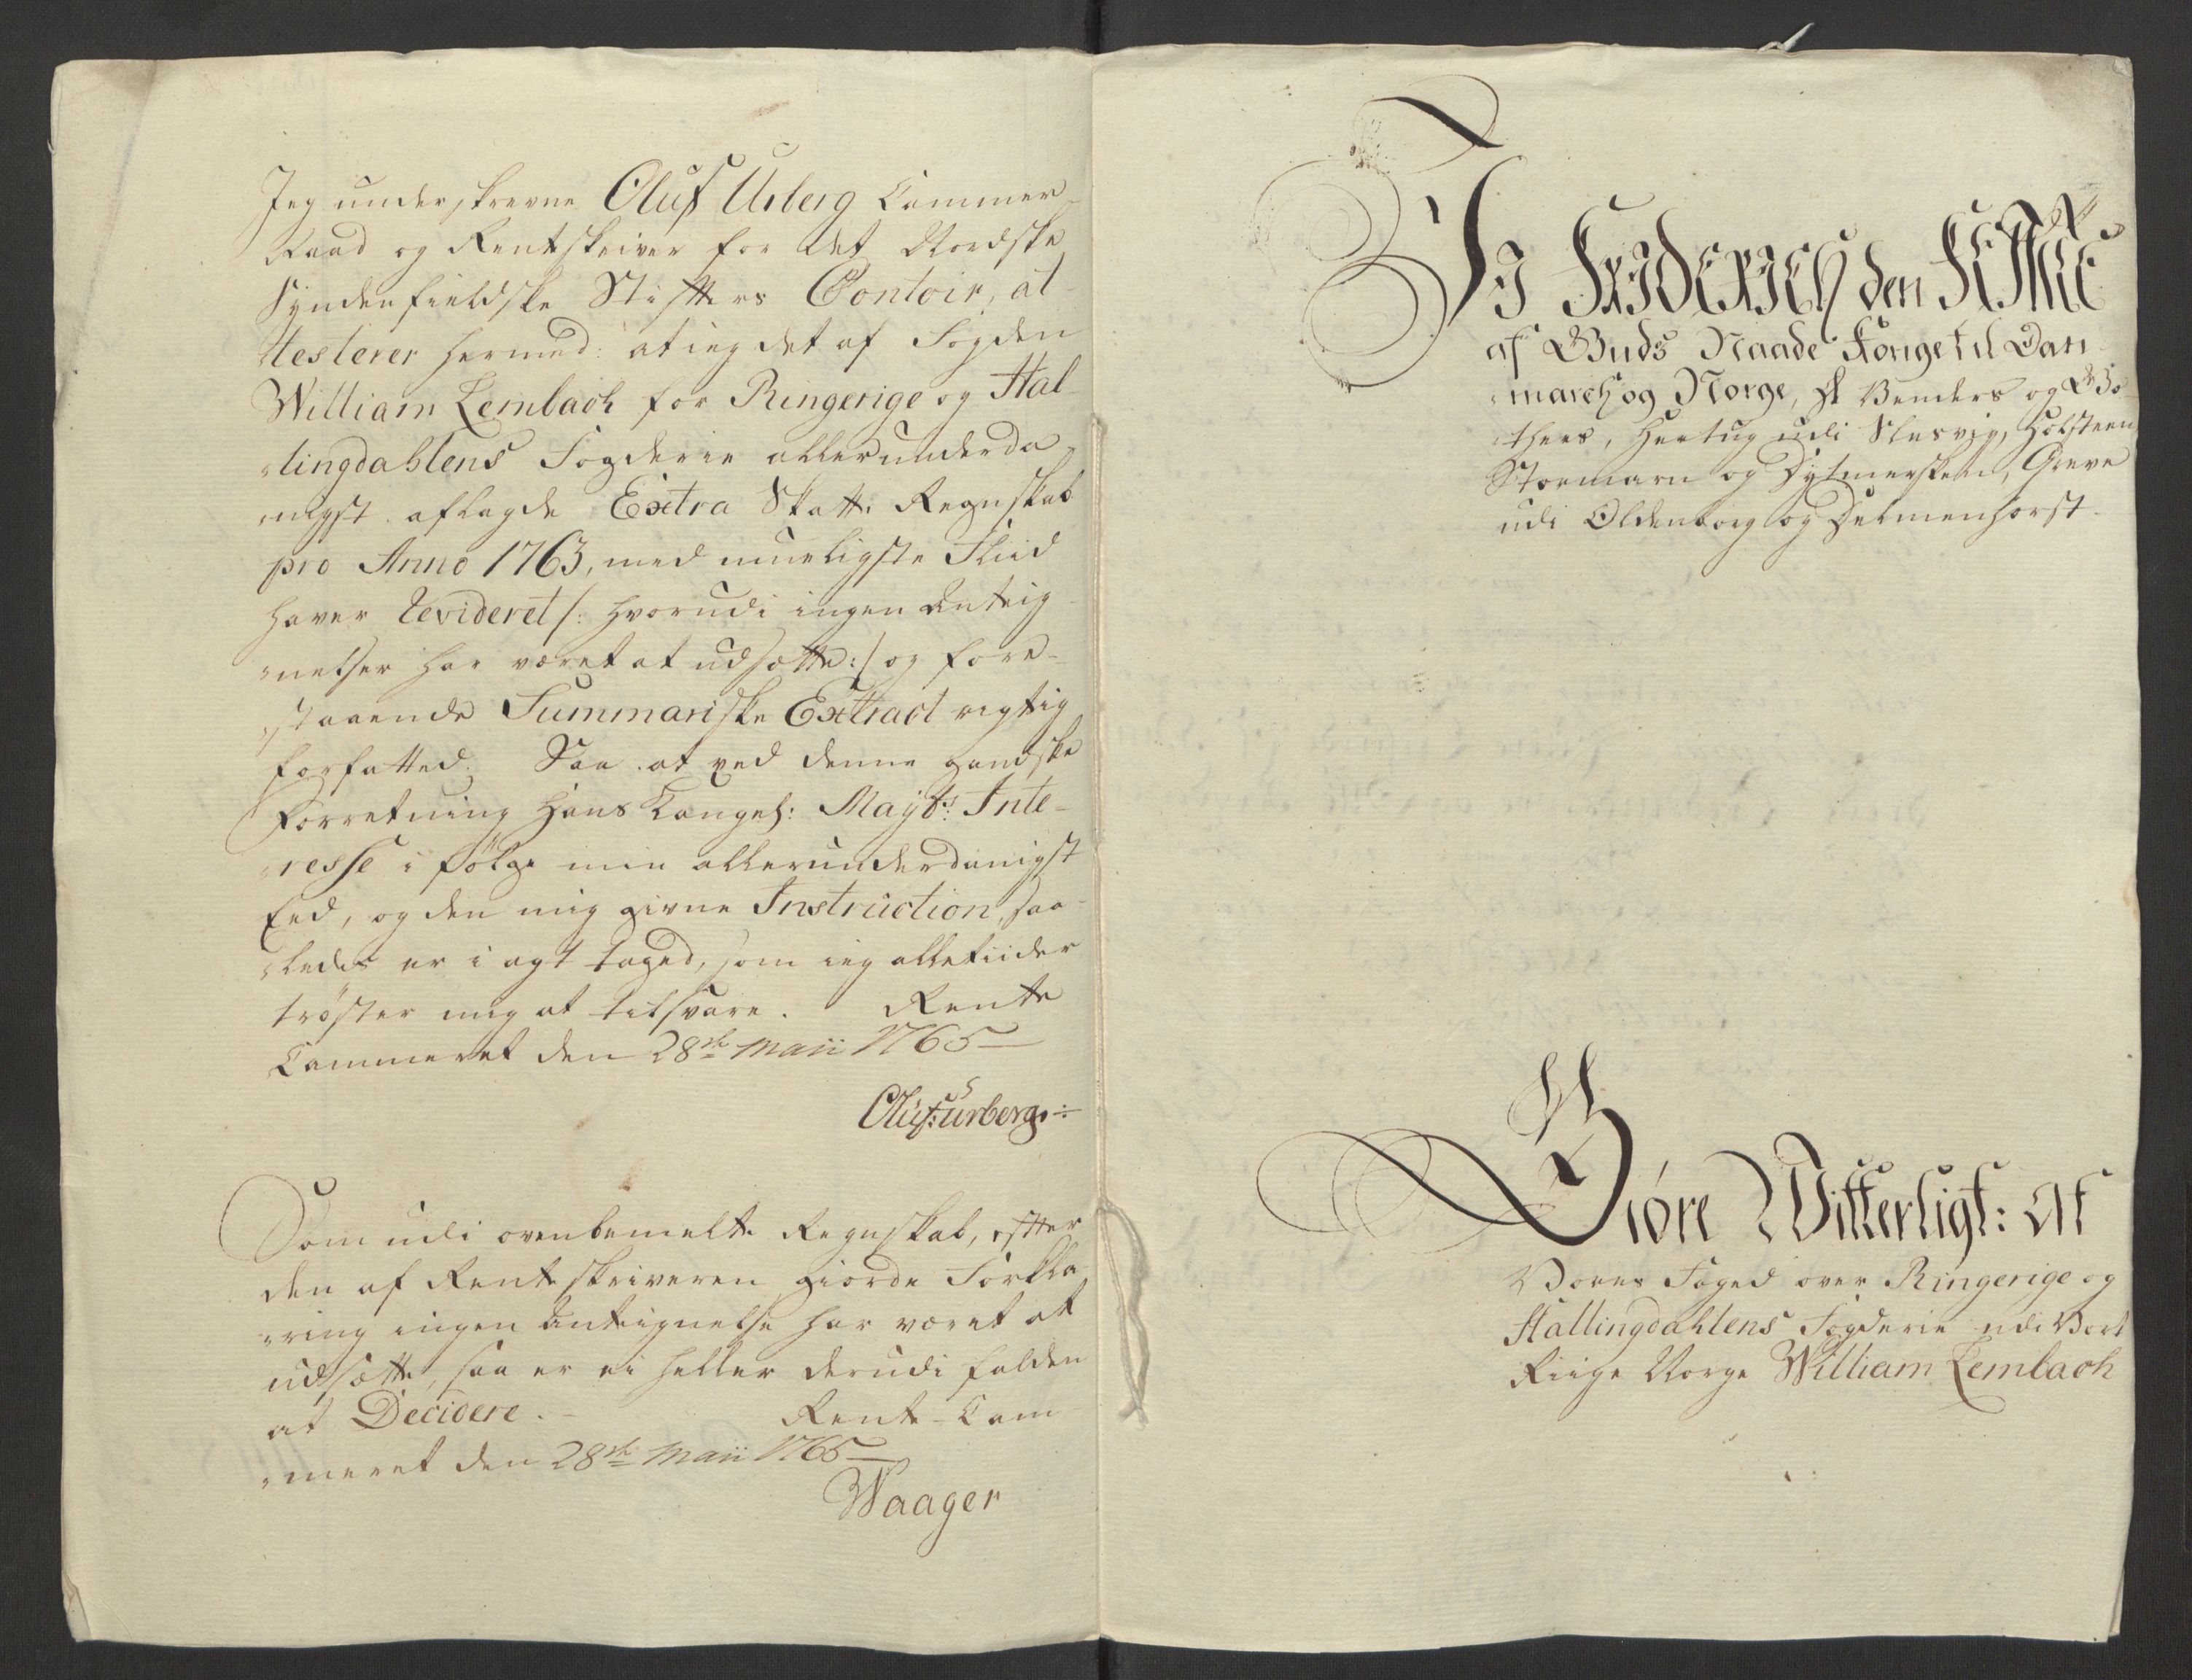 Jeg underskrevne Oluf Urberg Cammer-
Raad og Rentskriver for det Nordske
Syndenfieldske Stifters Contoir, at-
testerer hermed: at ieg det af Fogden
William Lembach for Ringerige og Hal-
lingdahlens Fogderie allerunderda-
nigst aflagde Extra Skatte Regnskab
pro Anno 1763, med mueligste Fliid
haver Revideret /: hvorudi ingen Anteig-
nelser har været at udsætte :/ og fore-
staaende Summariske Extract rigtig
forfatted. Saa at ved denne gandske
Forretning Hans Kongel: Mayts: Inte-
resse i følge min allerunderdanigst
Eed, og den mig givne Instruction, saa-
ledes er i agt taged, som ieg alletiider
trøster mig at tilsvare. Rente
Cammeret den 28de Maii 1765
Oluf: Urberg
Som udi ovenbemelte Regnskab, efter
den af Rentskriveren giorde Forkla-
ring ingen Anteignelse har været at
udsætte, saa er ei heller derudi falden
at Decidere. Rente-Cam
meret den 28de Maii 1765
Waager
Vj Friderich den Femte
af Guds Naade Konge til Dan-
march og Norge, de Venders og Go-
thers, Hertug udi Slesvig, Holsteen
Stormarn og Dytmersken, Greve
udi Oldenborg og Delmenhorst.
Giøre Witterligt: At
Vores Foged over Ringerige og
Hallingdahlens Fogderie udi Vort
Riige Norge William Lembach